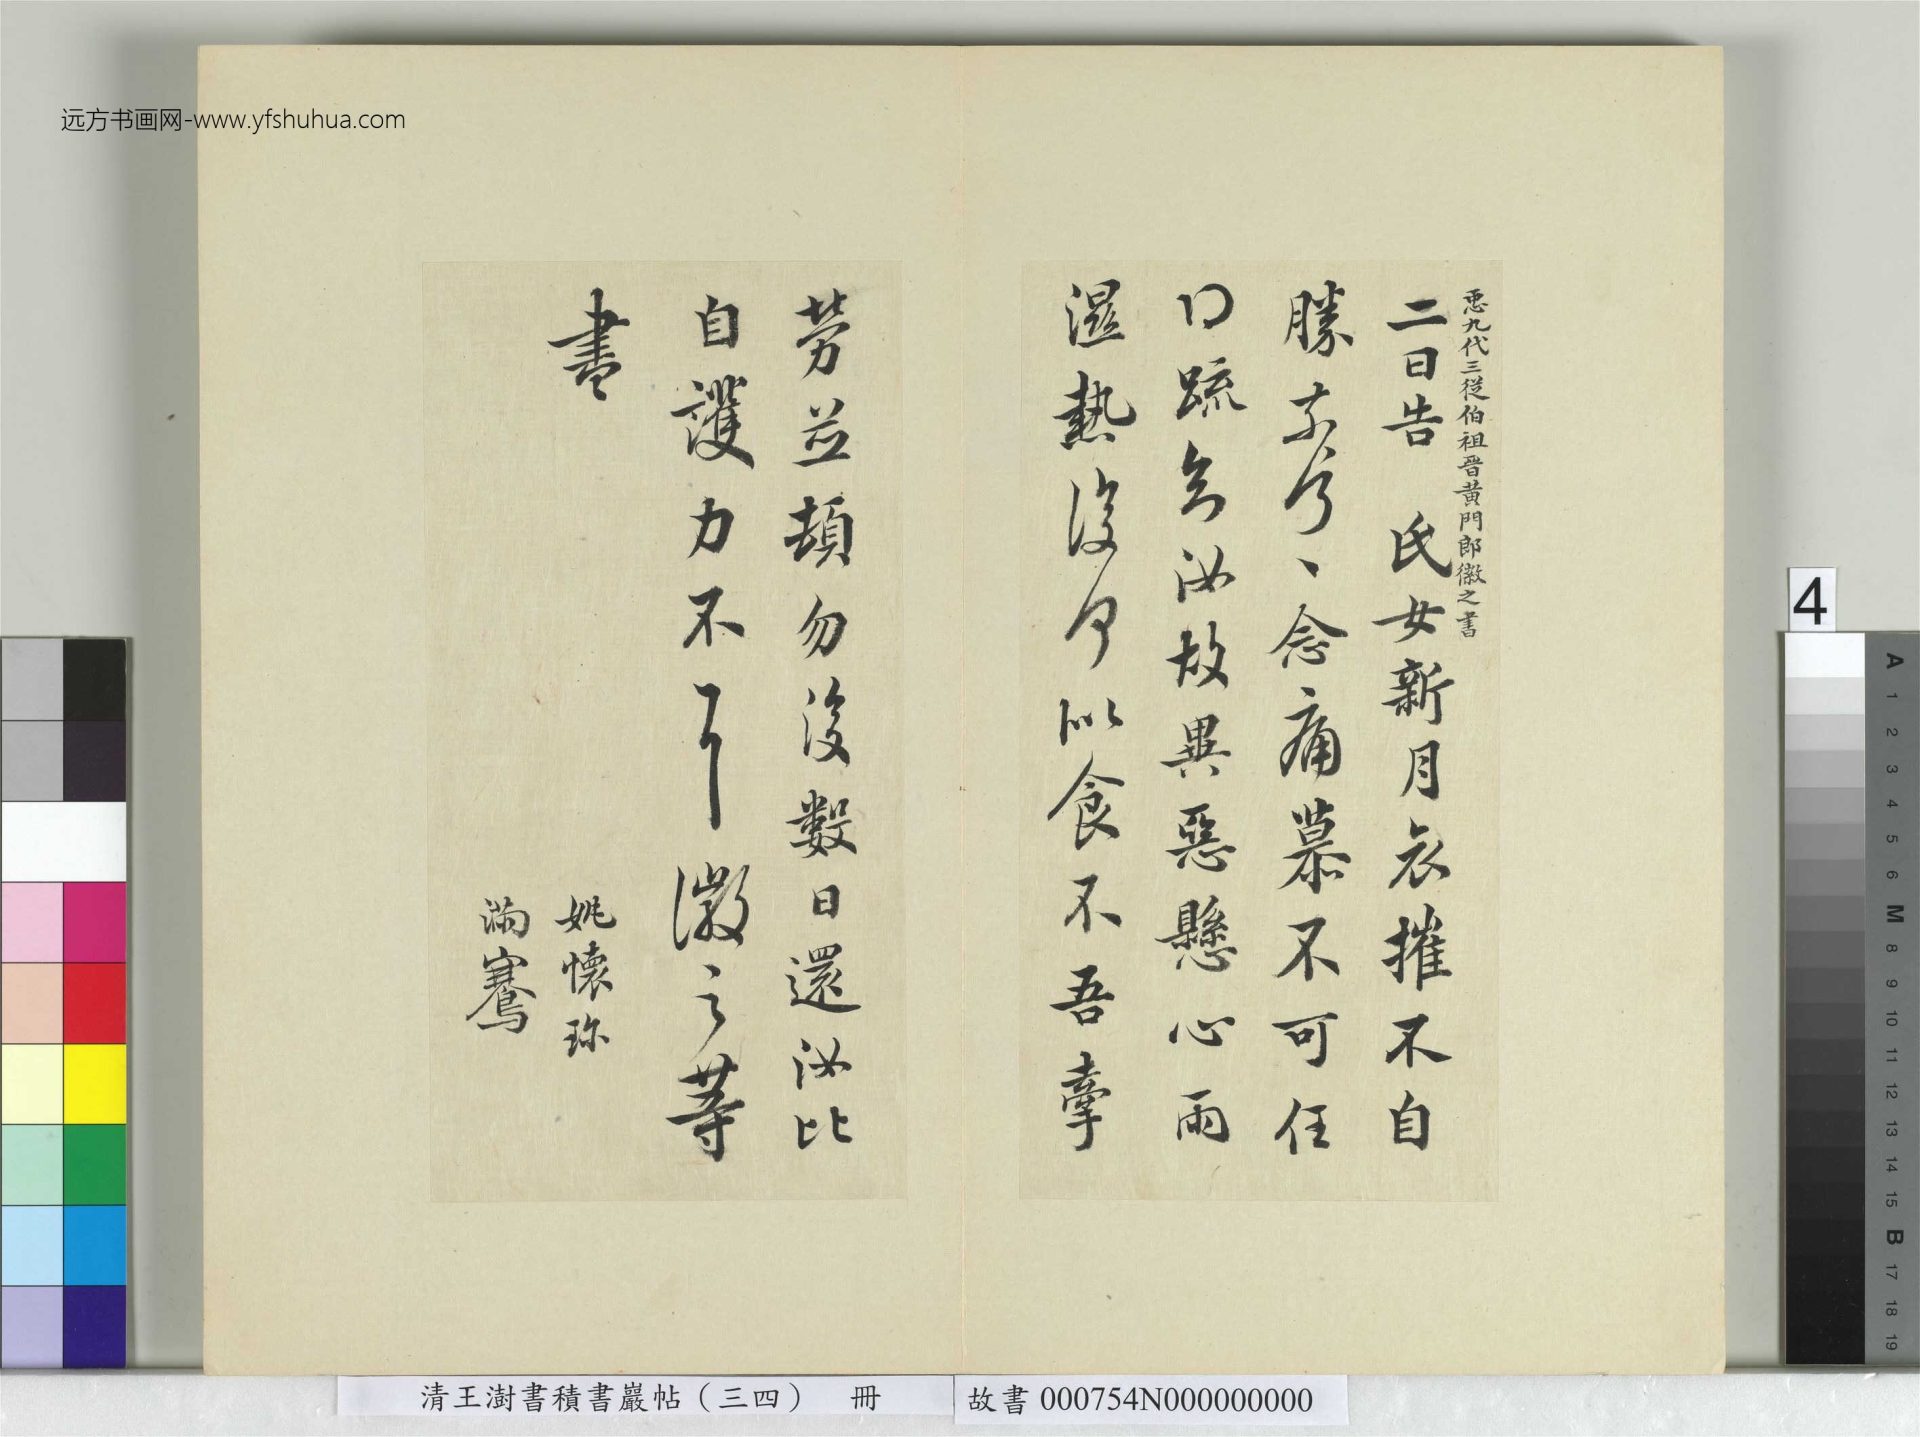 远方书画网-www.yfshuhua.com
臣九代三從伯祖晉黃門郎徽之書
二日告 氏女新月哀摧不自
勝奈何、念痛慕不可任
得疏知汝故異惡懸心雨
濕熱復何似食不吾牽
勞並頓勿復數日還汝比
自護力不具徽之等
書
姚懷珍
滿騫
4
清王澍書積書巖帖（三四） 冊
故書 000754N000000000
A 1 2 3 4 5 6 M 8 9 10 11 12 13 14 15 B 17 18 19